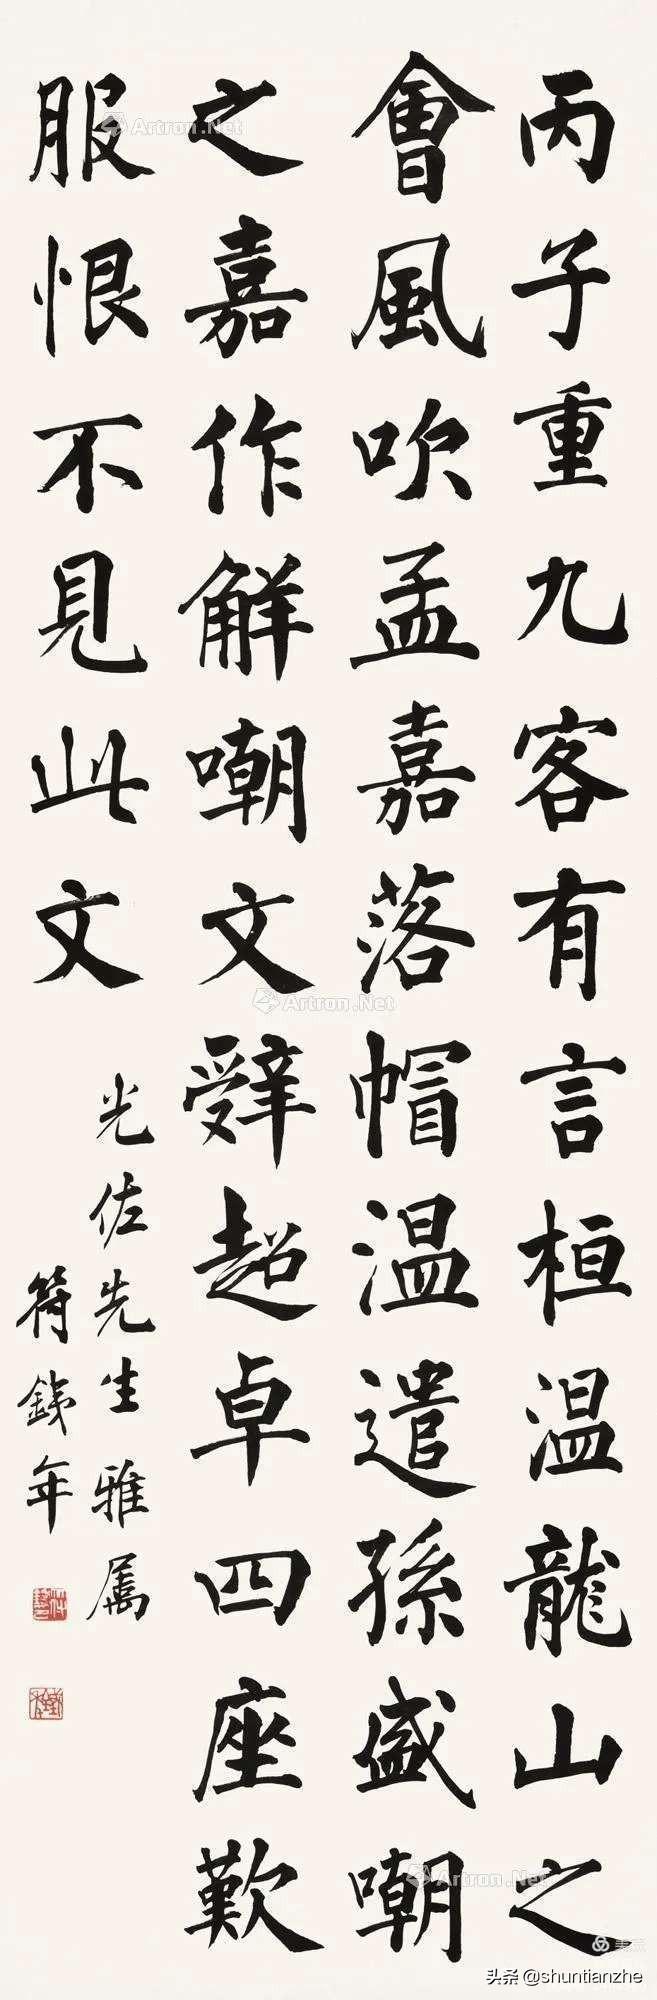 丙子重九客有言桓温龍山之
會風吹孟嘉落帽温遣孫盛嘲
之嘉作解嘲文辤超卓四座歎
服恨不見此文
光佐先生雅属
符鐵年
Artron.Net
Artron.Net
Artron.Net
头条 @shuntianzhe